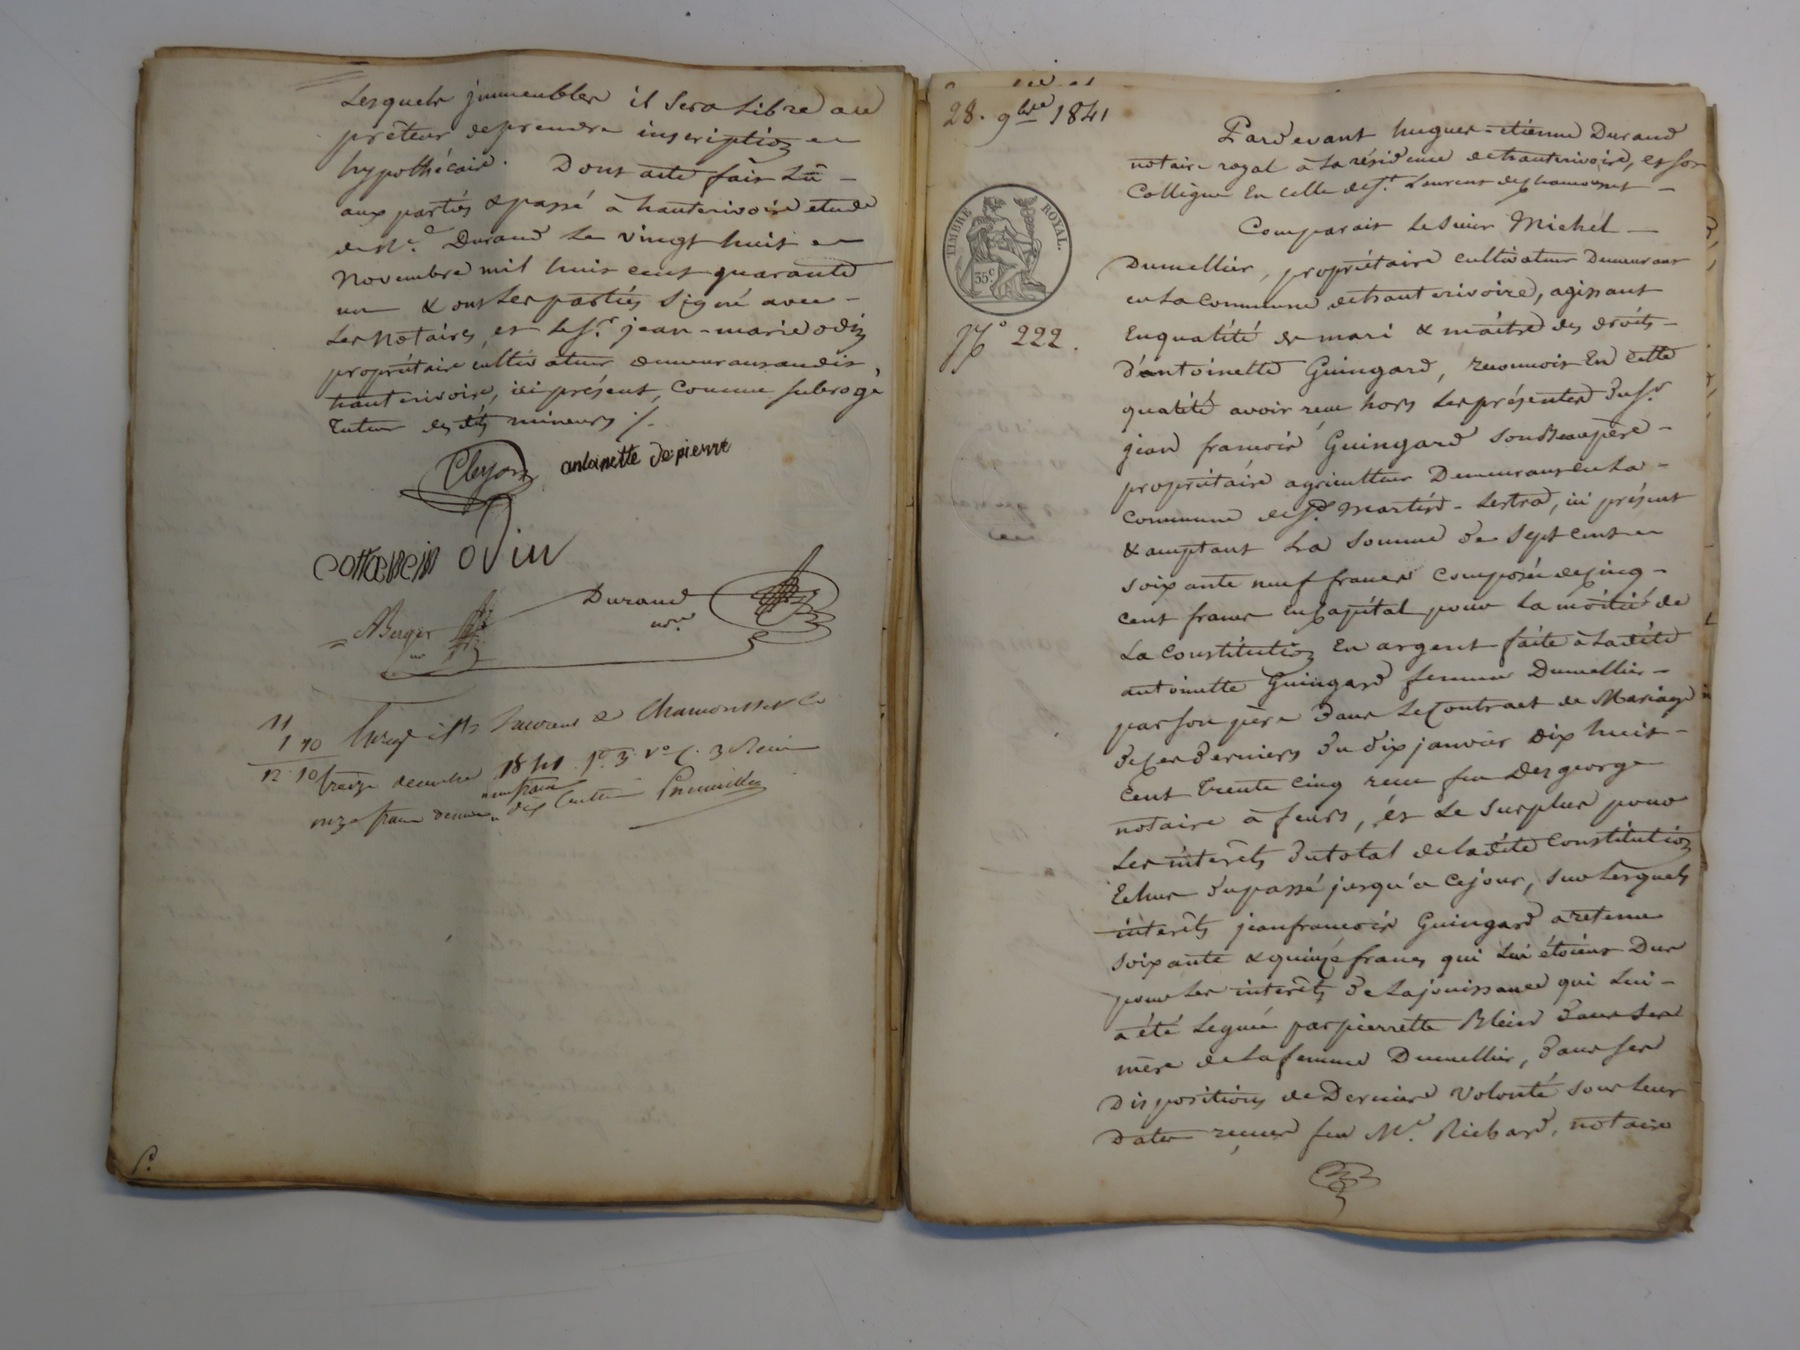 Lesquels jmmeubles il sera libre au
prêteur de prendre inscription en
hypothécaire. Dont acte fait Lû -
aux parties & passé à hauterivoire etude
de Me. Durand Le vingt huit en
Novembre mil huit cent quarante
un & ont Les parties Signé avec -
Les Notaires, et Le Sr. jean-marie odin
propriétaire cultivateur demeurant audit
hauterivoire, ici présent, comme subrogé
Tuteur des dts mineurs ./.
antoinette depierre
odin
Durand
nre
ABerger
11
1 10
12. 10
Enregistré à St Laurent de Chamousset le
treize décembre 1841 fo. 3 vo c. 3 Reçu
onze francs décime un franc dix Centimes
28. 9bre 1841
TIMBRE ROYAL.
35c
No 222.
Pardevant hugues-etienne Durand
notaire royal à La résidence de hauterivoire, et son
Collègue En celle de St. Laurent de chamousset -
Comparait Le sieur Michel -
Dumellier, propriétaire cultivateur Demeurant
en La commune de hauterivoire, agissant
En qualité de mari & maître des droits -
d'antoinette Guingard, reconnoit En cette
qualité avoir reçu hors Les présentes du Sr.
jean francois Guingard son Beaupère -
propriétaire agriculteur Demeurant en La -
commune de St. Martin-Lestra, ici présent
& acceptant La Somme de Sept cent
soixante neuf francs composée de Cinq -
cent francs en Capital pour La moitié de
La Constitution En argent faite à La dite
antoinette Guingard femme Dumellier -
par son père dans Le Contrat de Mariage
de Ces derniers du dix janvier dix huit -
Cent Trente Cinq reçu feu Desgeorge
notaire à feurs, et Le surplus pour
Les intérêts du total de La dite Constitution
Echus du passé jusqu'à ce jour, sur Lesquels
intérêts jean francois Guingard a retenu
soixante & quinze francs qui Lui étoient Dus
pour Les intérêts de La jouissance qui Lui -
a été Leguée par pierrette Blein
mère de La femme Dumellier, dans ses
Dispositions de Dernière Volonté sous Leur
Dates reçues feu Me. Richard, notaire